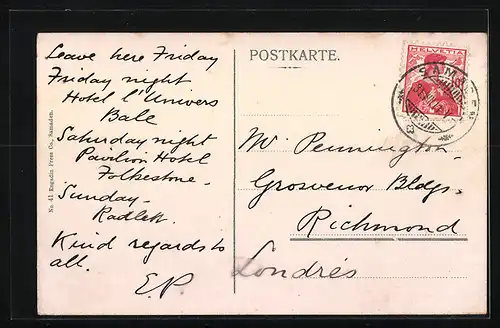 Leave here Friday
Friday night
Hotel l'Univers
Bale
Saturday night
Pavilion Hotel
Folkestone -
Sunday -
Radlett.
Kind regards to
all.
E.P
No. 41 Engadin Press Co., Samaden.
POSTKARTE.
HELVETIA
SAMADEN
Mr Pennington -
Grosvenor Bldgs.
Richmond
Londrés